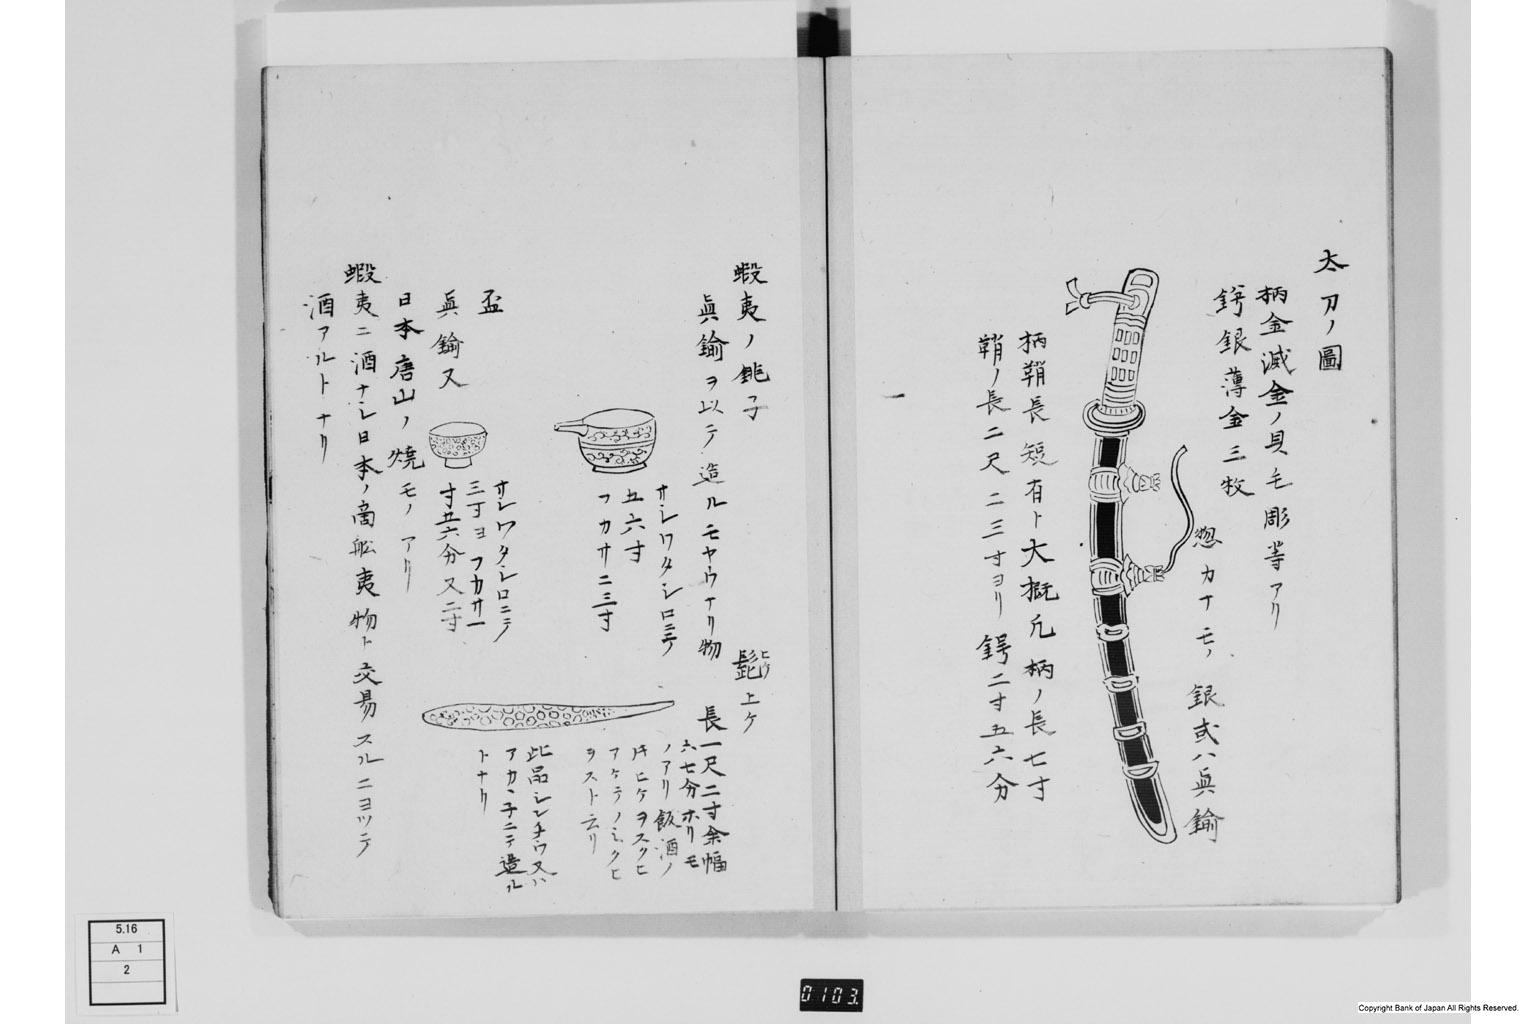 太刀ノ圖
柄金滅金ノ貝毛彫等アリ
鍔銀薄金三牧
惣カナモノ銀或ハ眞鍮
柄鞘長短有ト大概凡柄ノ長七寸
鞘ノ長二尺二三寸ヨリ鍔二寸五六分
蝦夷ノ銚子
眞鍮ヲ以テ造ルモヤウナリ物
サシワタシロニテ
五六寸
フカサ二三寸
髭上ケ
ヒケ
長一尺二寸余幅
六七分ホリモ
ノアリ飯酒ノ
片ヒケヲスクヒ
アケテノミクヒ
ヲスト云リ
此品シンチウ又ハ
アカヽ子ニテ造ル
トナリ
盃
眞鍮又
日本唐山ノ焼モノアリ
サシワタシロニテ
三寸ヨフカサ一
寸五六分又二寸
蝦夷ニ酒ナシ日本ノ商舩夷物ト交易スルニヨツテ
酒アルトナリ
5.16
A 1
2
0103.
Copyright Bank of Japan All Rights Reserved.